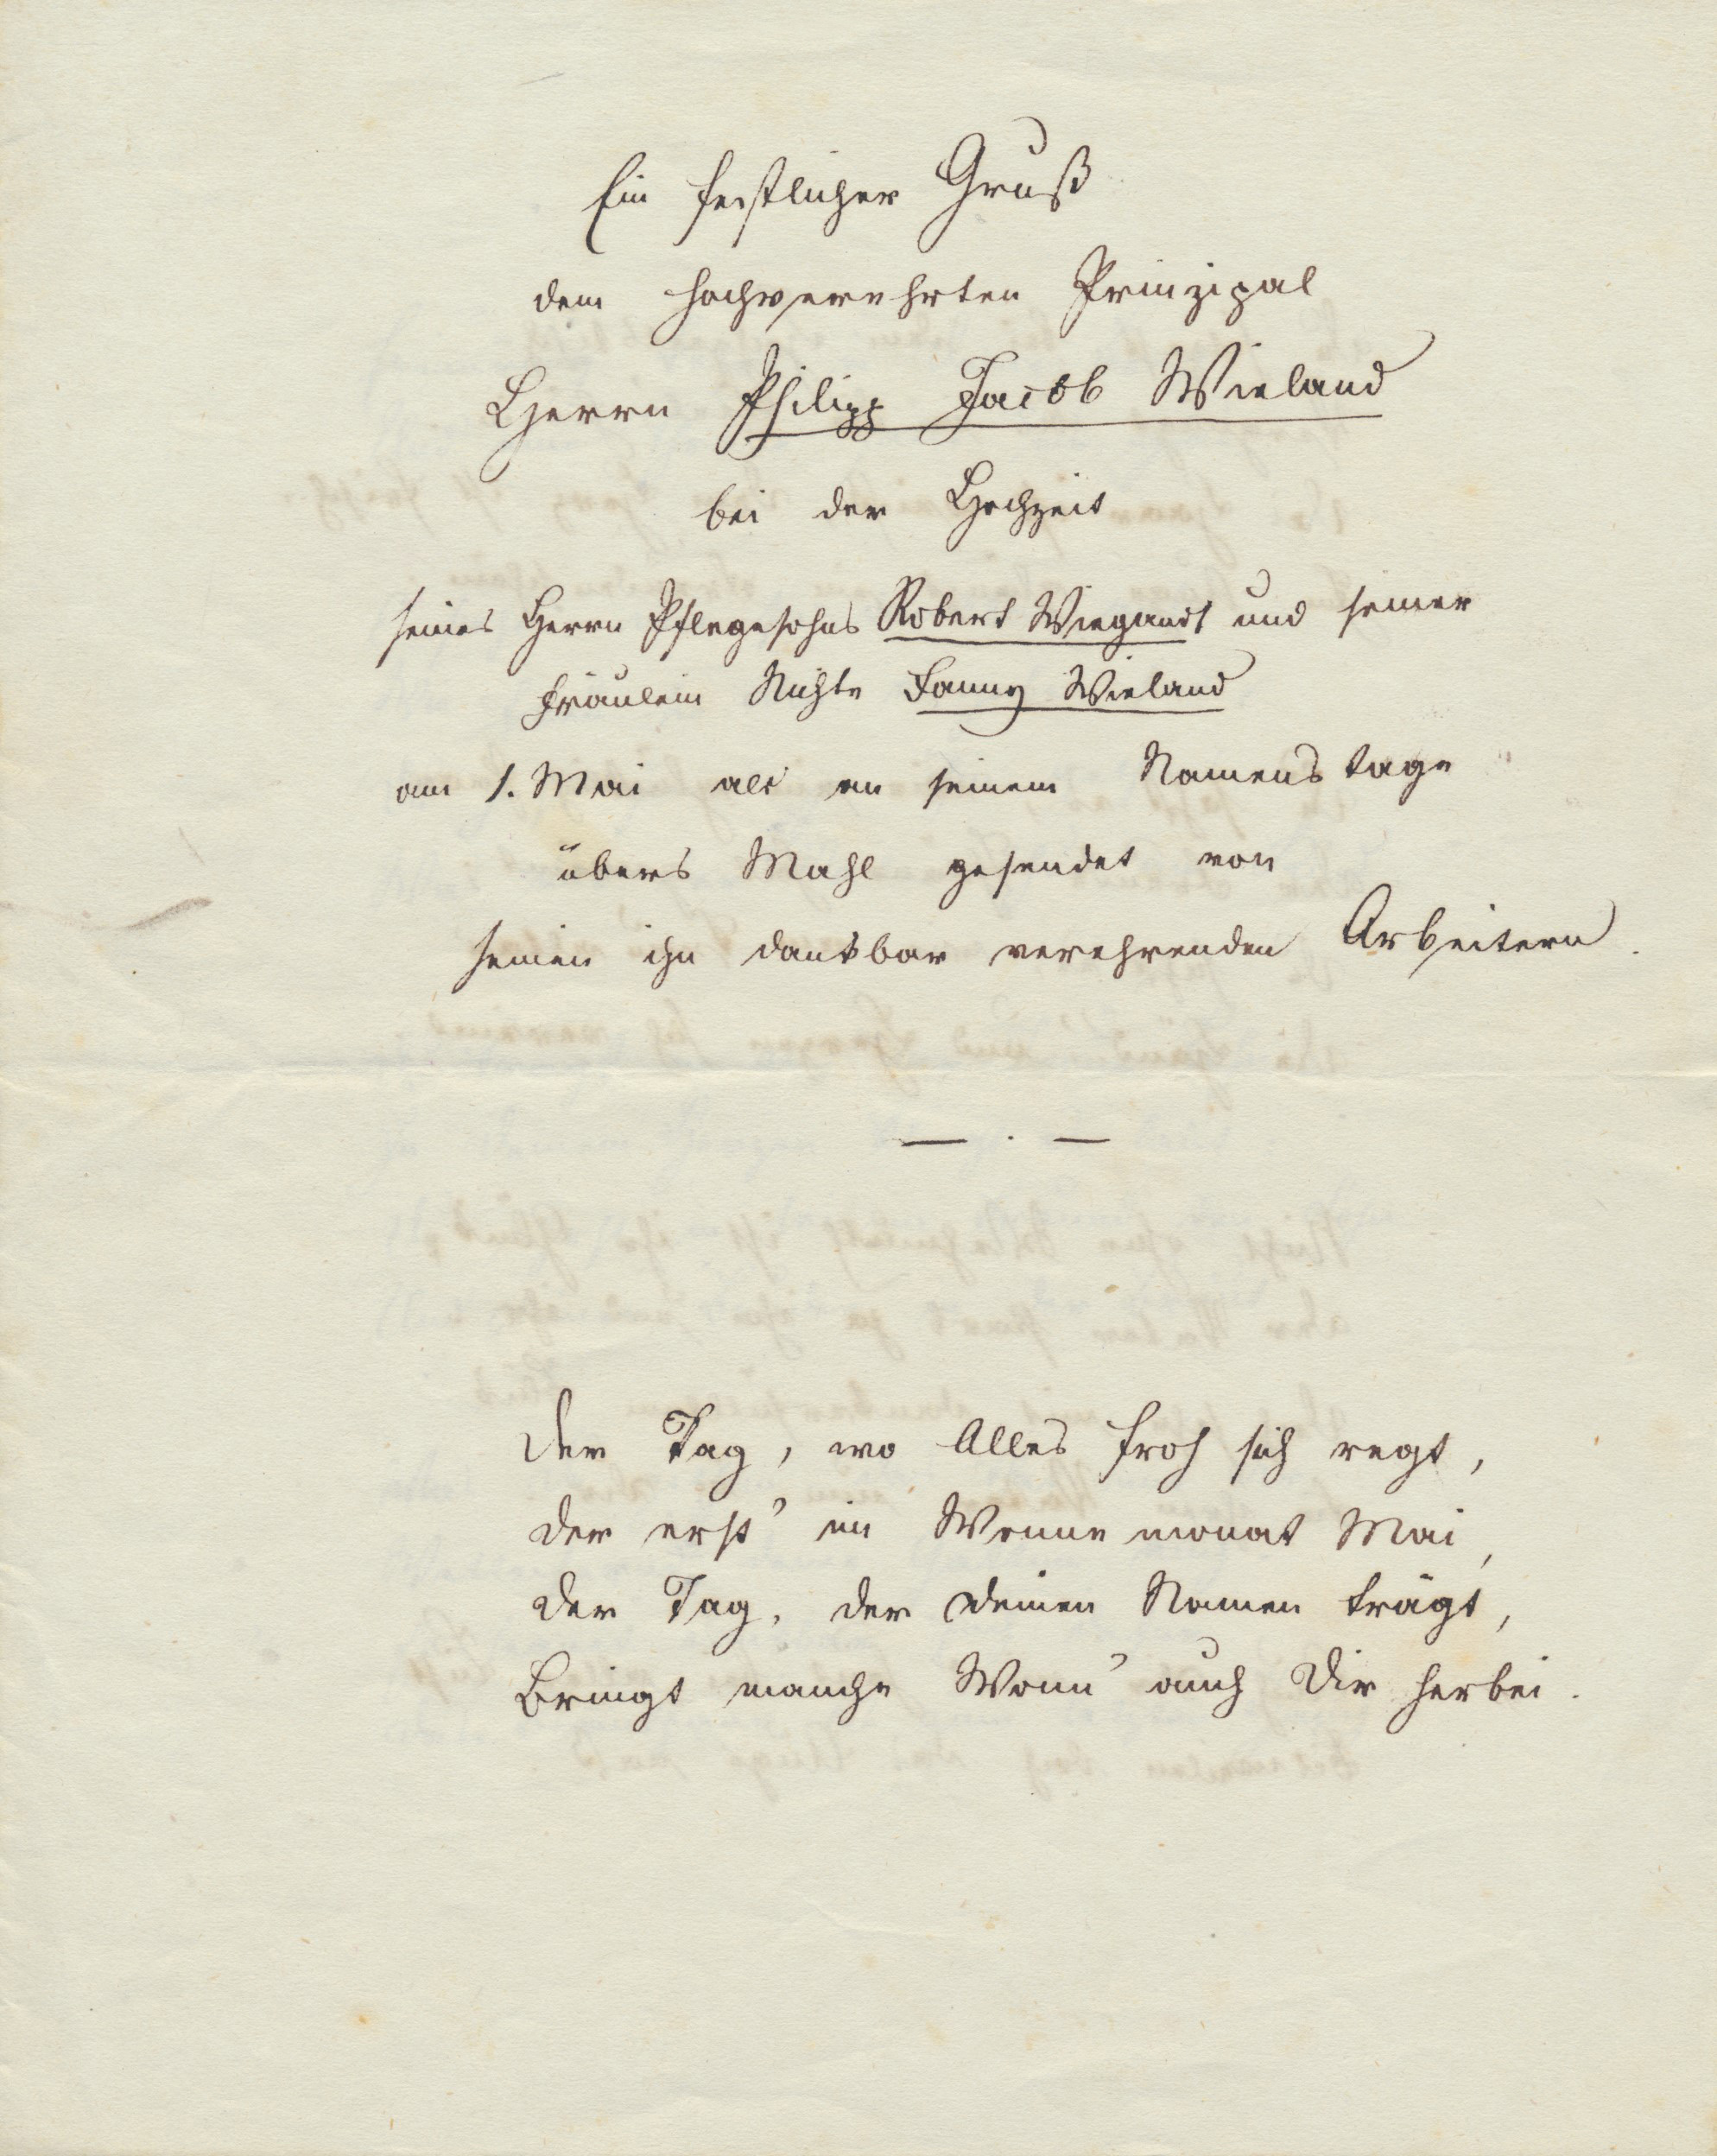 Ein festlicher Gruß
dem hochverehrten Prinzipal
Herrn Philipp Jacob Wieland
bei der Hochzeit
seines Herrn Pflegesohns Robert Wiegandt und seiner
Fräulein Nichte Fanny Wieland
am 1. Mai als an seinem Namenstage
übers Mahl gesendet von
seinen ihn dankbar verehrenden Arbeitern.
— . —
Der Tag, wo Alles froh sich regt,
der erst' im Wonnemonat Mai,
der Tag, der Deinen Namen trägt,
Bringt manche Wonn' auch Dir herbei.